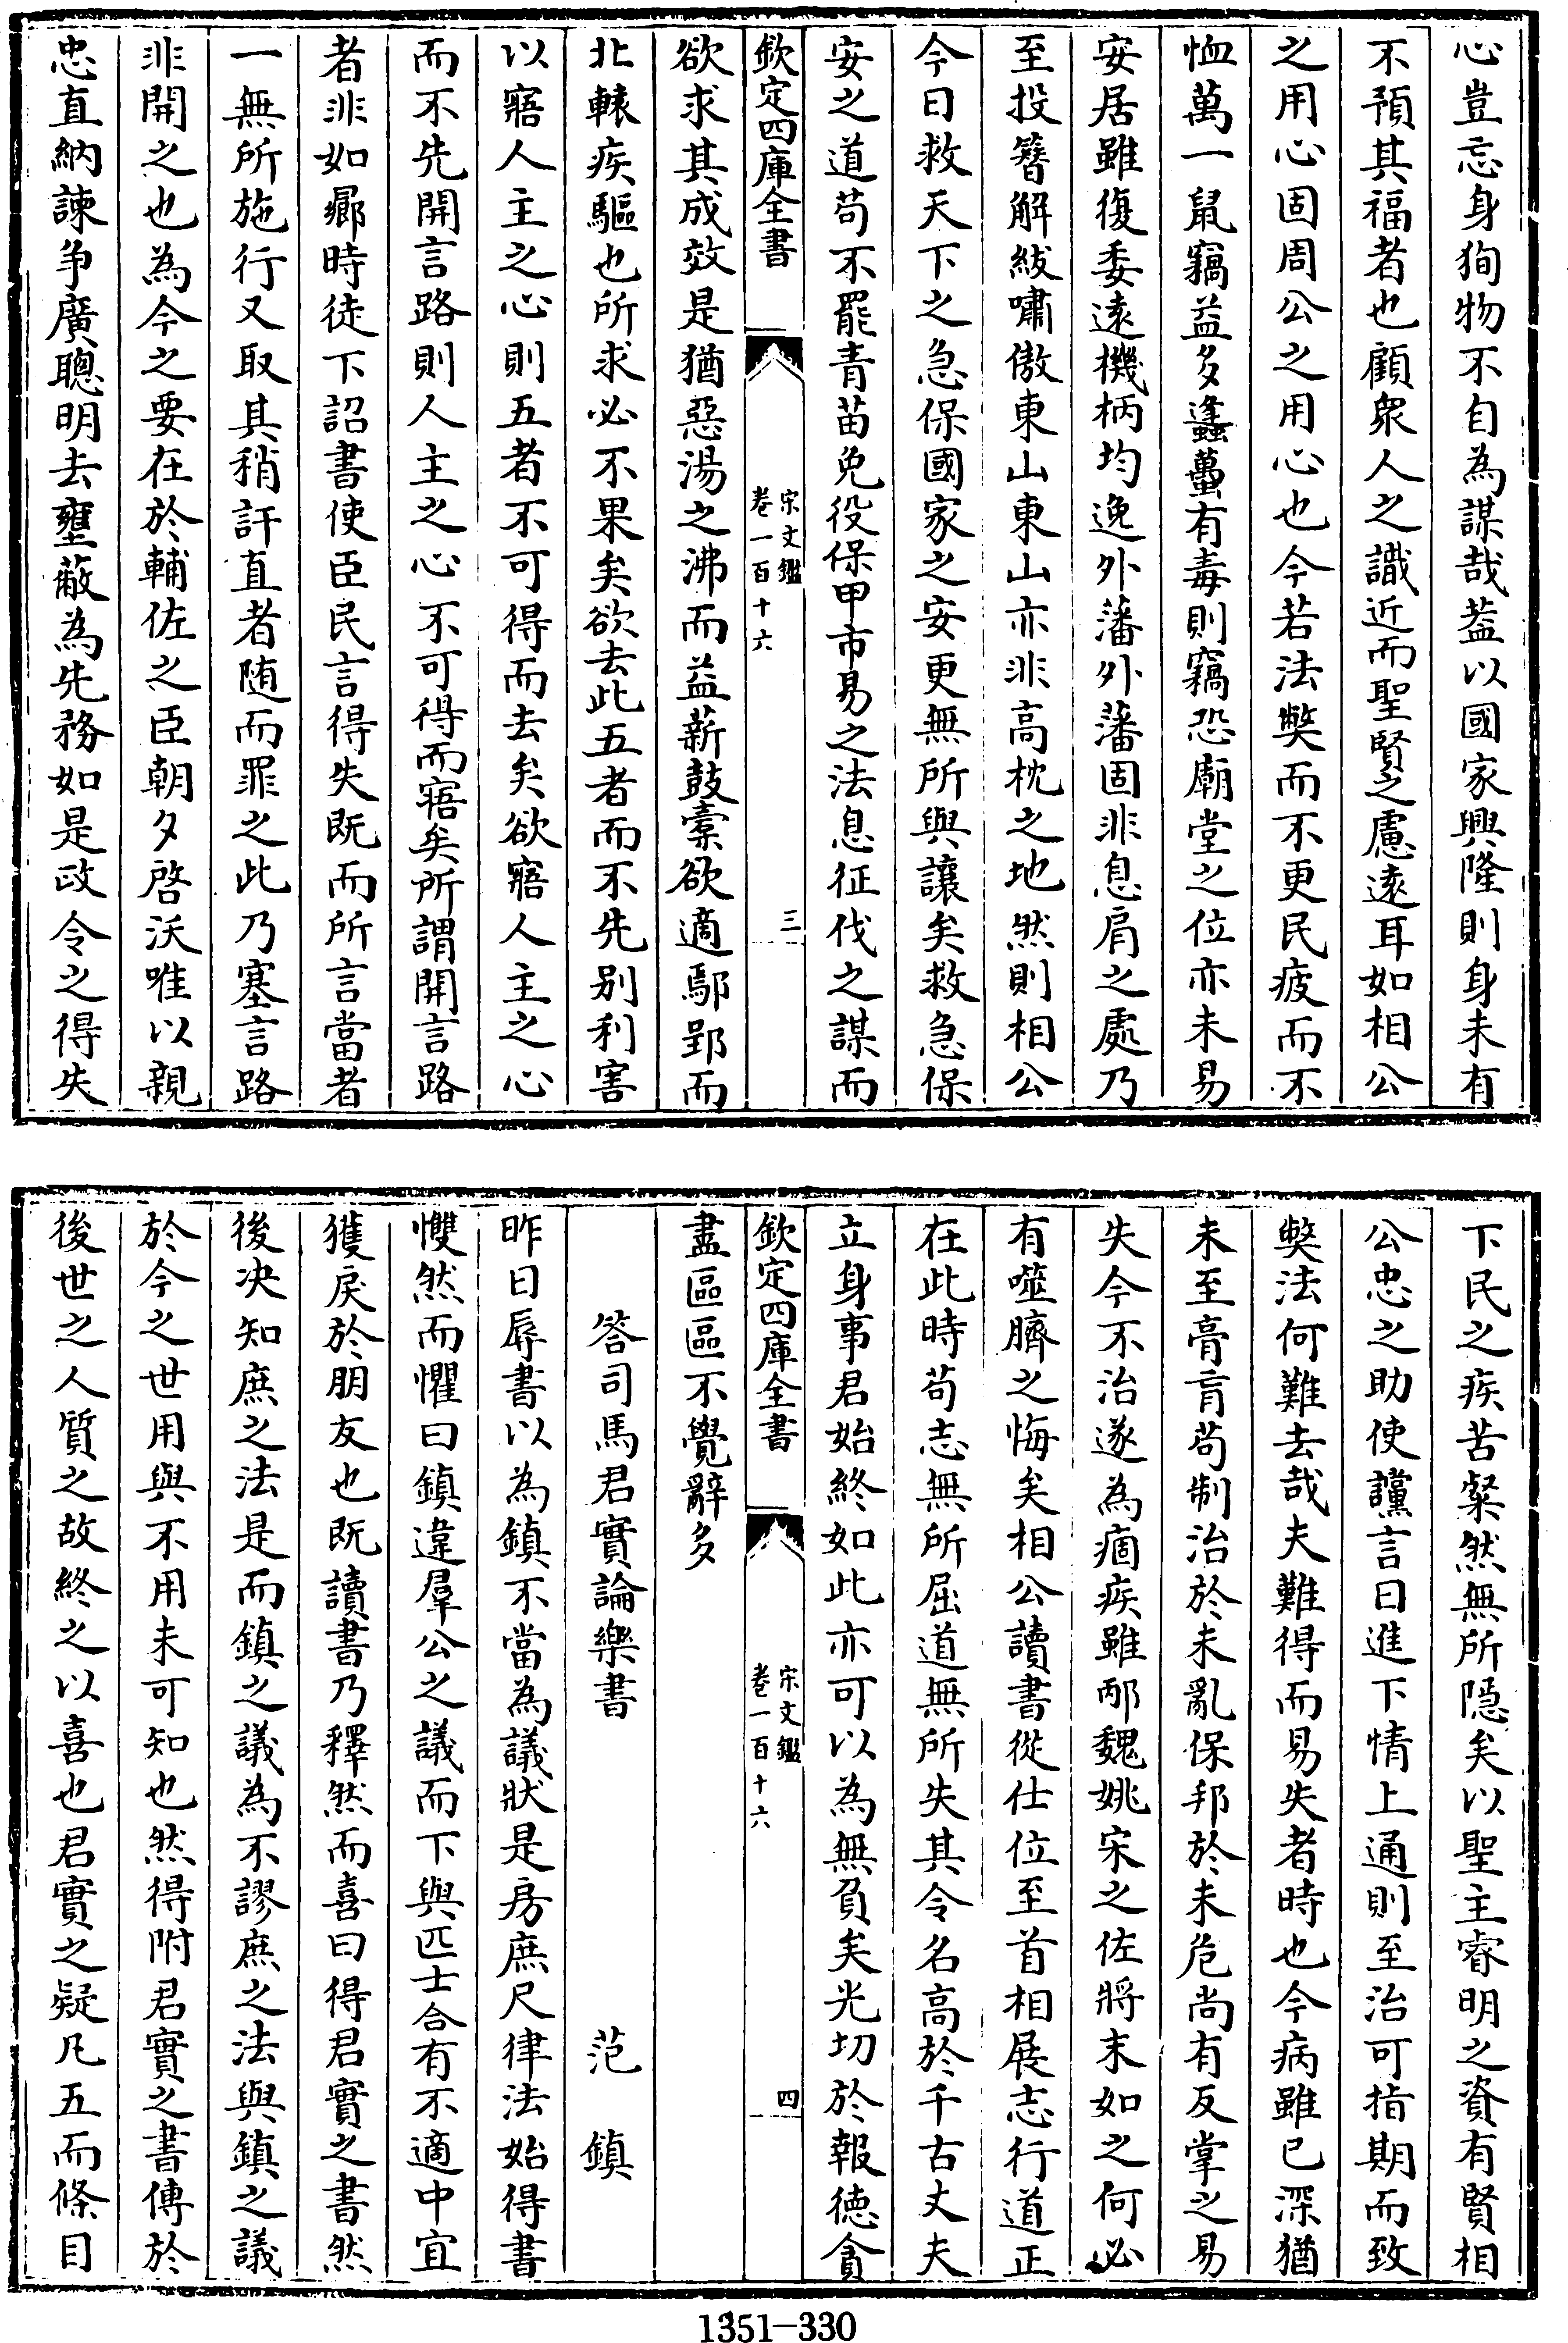 心豈忘身狥物不自為謀哉葢以國家興隆則身未有
不預其福者也顧衆人之識近而聖賢之慮遠耳如相公
之用心固周公之用心也今若法弊而不更民疲而不
恤萬一鼠竊益多蠭蠆有毒則竊恐廟堂之位亦未易
安居雖復委遠機柄均逸外藩外藩固非息肩之處乃
至投簪解紱嘯傲東山東山亦非高枕之地然則相公
今日救天下之急保國家之安更無所與讓矣救急保
安之道苟不罷青苗免役保甲市易之法息征伐之謀而
欽定四庫全書
宋文鑑
卷一百十六
三
欲求其成效是猶惡湯之沸而益薪鼓橐欲適鄢郢而
北轅疾驅也所求必不果矣欲去此五者而不先别利害
以寤人主之心則五者不可得而去矣欲寤人主之心
而不先開言路則人主之心不可得而寤矣所謂開言路
者非如曏時徒下詔書使臣民言得失既而所言當者
一無所施行又取其稍訐直者随而罪之此乃塞言路
非開之也為今之要在於輔佐之臣朝夕啓沃唯以親
忠直納諫爭廣聰明去壅蔽為先務如是政令之得失
下民之疾苦粲然無所隠矣以聖主睿明之資有賢相
公忠之助使讜言日進下情上通則至治可指期而致
弊法何難去哉夫難得而易失者時也今病雖已深猶
未至膏肓苟制治於未亂保邦於未危尚有反掌之易
失今不治遂為痼疾雖邴魏姚宋之佐將末如之何必
有噬臍之悔矣相公讀書從仕位至首相展志行道正
在此時苟志無所屈道無所失其令名高於千古丈夫
立身事君始終如此亦可以為無負矣光切於報徳貪
欽定四庫全書
宋文鑑
卷一百十六
四
盡區區不覺辭多
答司馬君實論樂書 范鎮
昨日辱書以為鎮不當為議狀是房庶尺律法始得書
戄然而懼曰鎮違羣公之議而下與匹士合有不適中宜
獲戾於朋友也既讀書乃釋然而喜曰得君實之書然
後决知庶之法是而鎮之議為不謬庶之法與鎮之議
於今之世用與不用未可知也然得附君實之書傳於
後世之人質之故終之以喜也君實之疑凡五而條目
1351-330